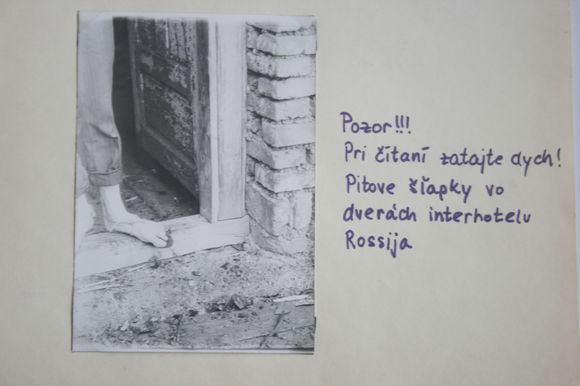 Pozor!!!
Pri čítaní zatajte dych!
Pitove šľapky vo
dverách interhotelu
Rossija